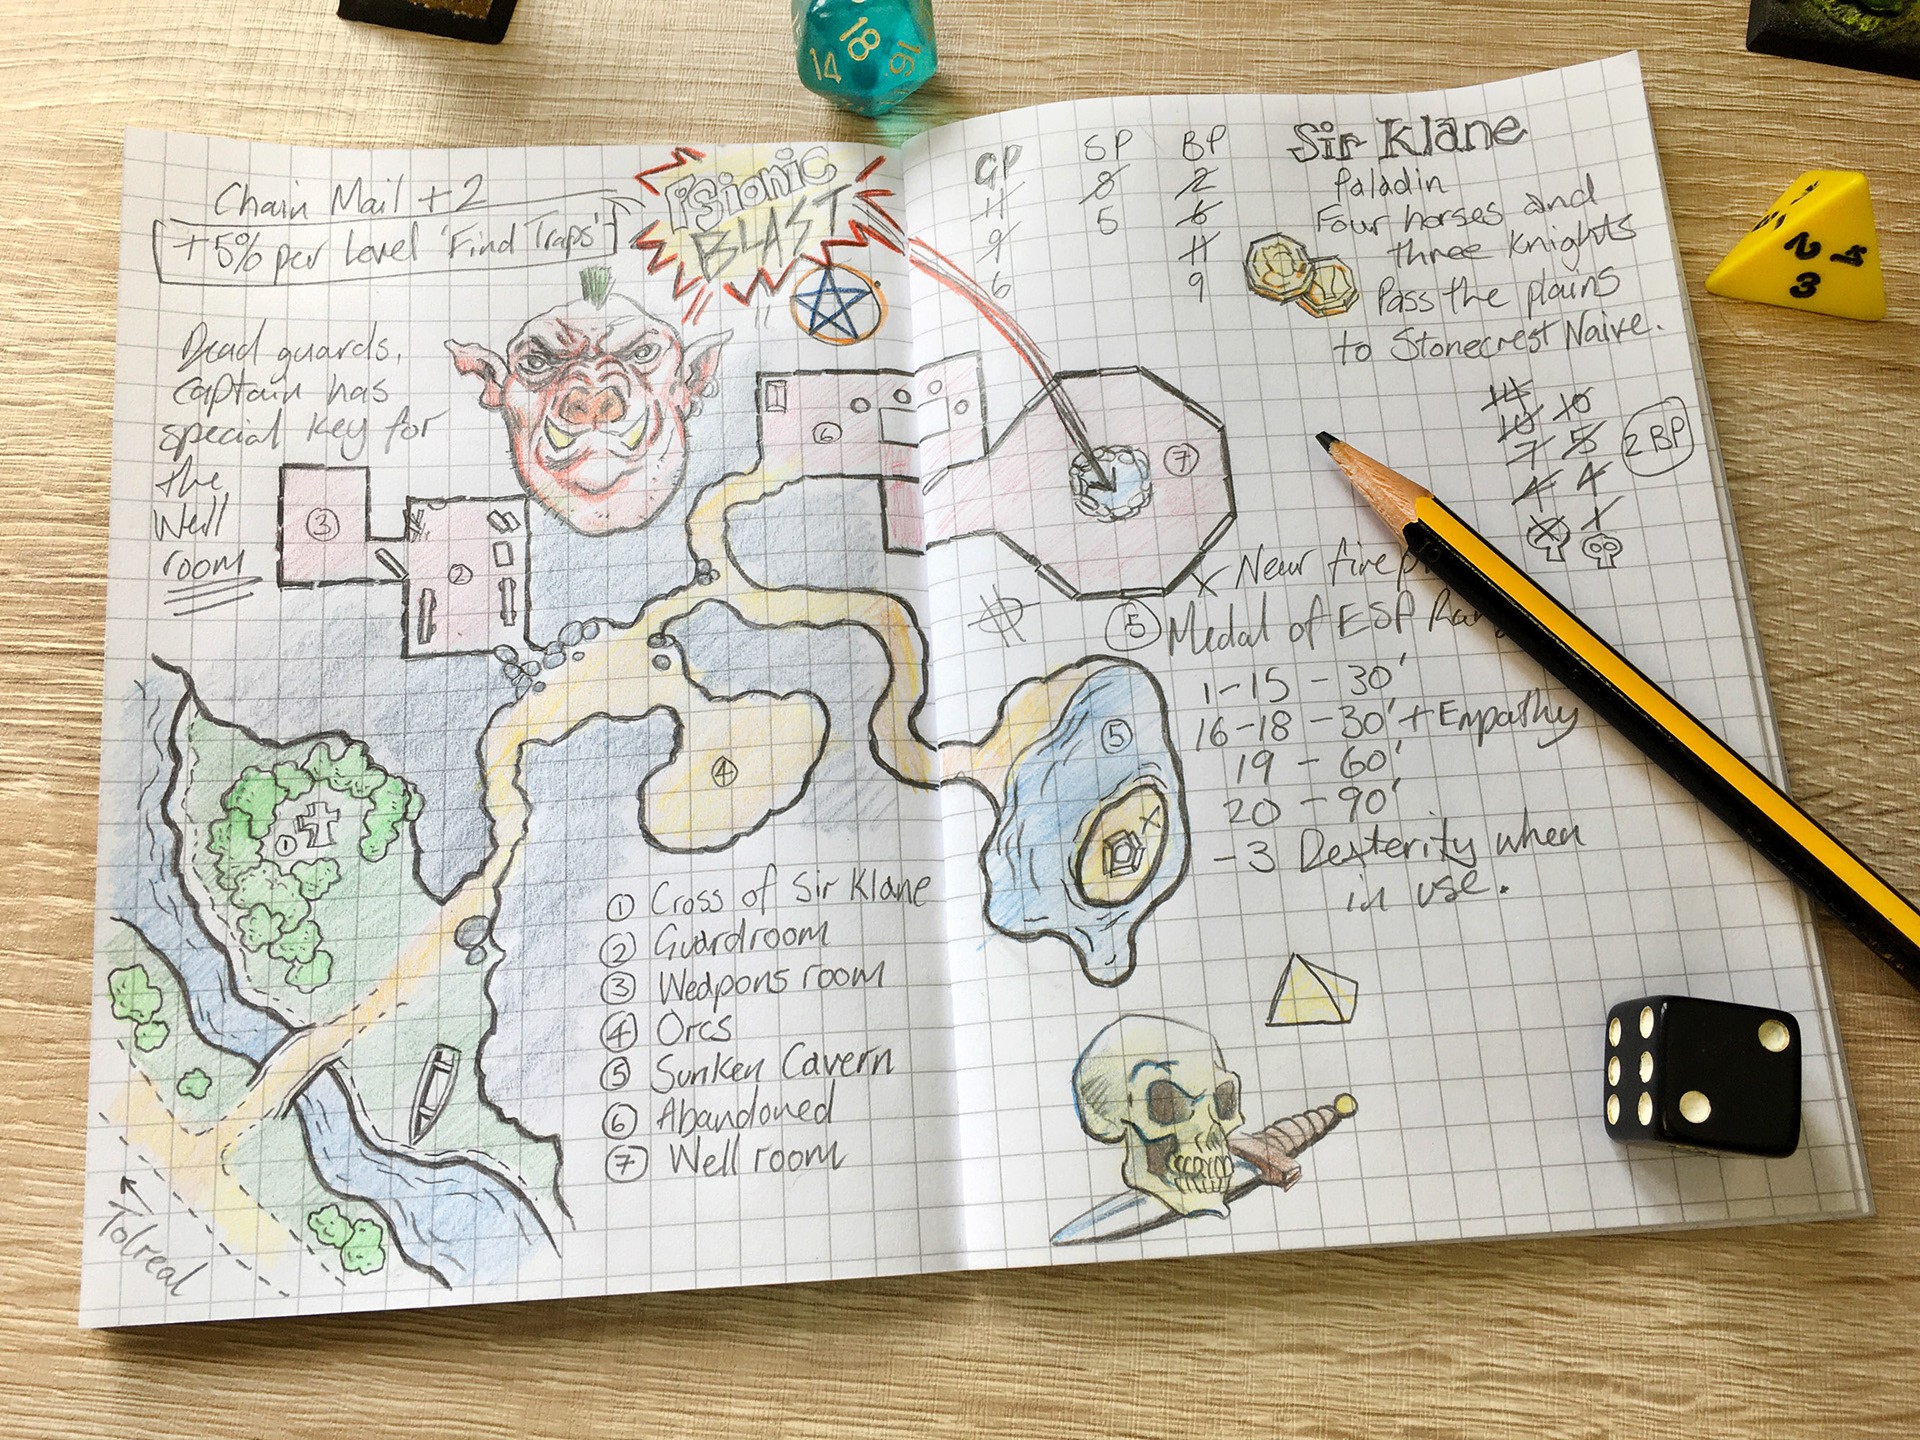 Chain Mail + 2
+5% per Level 'Find Traps'
PSionic
BLAST
Dead guards,
captain has
special key for
the
Well
room
3
2
6
7
4
5
1
① Cross of Sir Klane
② Guardroom
③ Weapons room
④ Orcs
⑤ Sunken Cavern
⑥ Abandoned
⑦ Well room
Tolreal
GP SP BP
11 8 2
9 5 6
6 11
9
Sir Klane
Paladin
Four horses and
three knights
Pass the plains
to Stonecrest Naive.
14
10 10
7 5
4 4
1
2 BP
X Near fire
⑤ Medal of ESP
1-15 - 30'
16-18 - 30' + Empathy
19 - 60'
20 - 90'
-3 Dexterity when
in use.
X
18
14
16
2
3